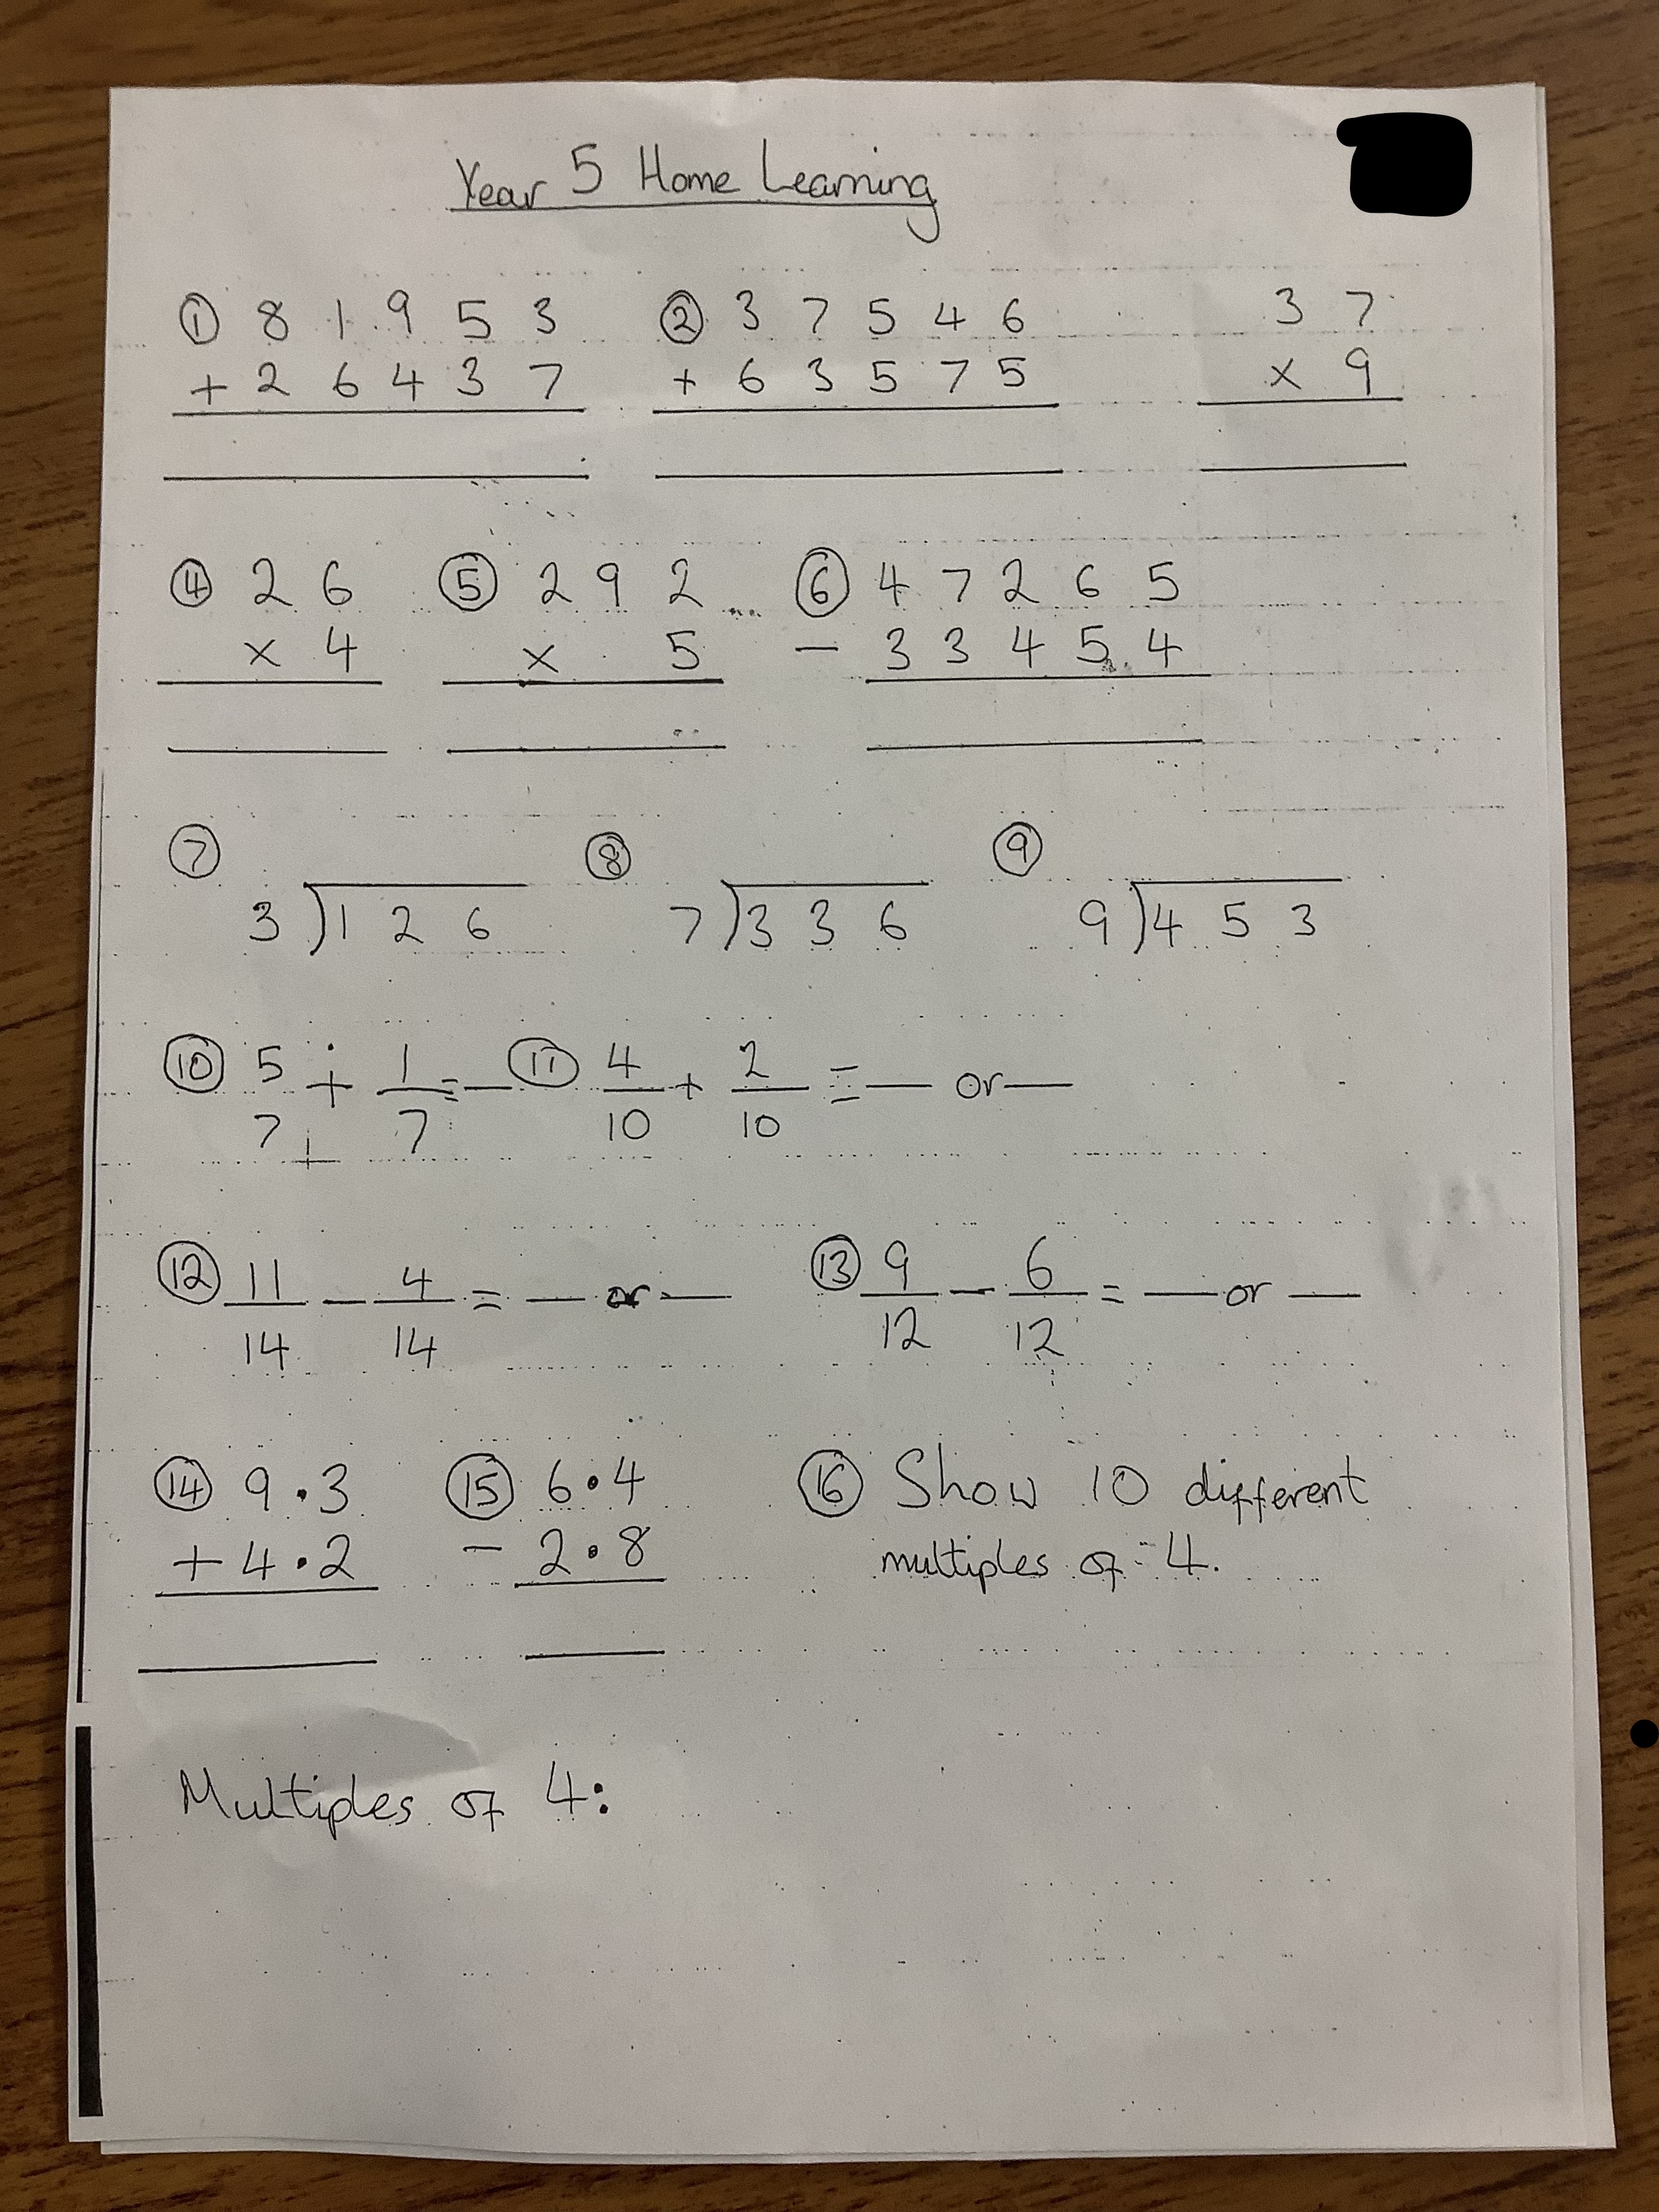 Year 5 Home Learning
① 8 1 9 5 3 ② 3 7 5 4 6 3 7
+ 2 6 4 3 7 + 6 3 5 7 5 x 9
④ 2 6 ⑤ 2 9 2 ⑥ 4 7 2 6 5
x 4 x 5 - 3 3 4 5 4
⑦ ⑧ ⑨
3)1 2 6 7)3 3 6 9)4 5 3
⑩ 5/7 + 1/7 = — ⑪ 4/10 + 2/10 = — or —
⑫ 11/14 - 4/14 = — or — ⑬ 9/12 - 6/12 = — or —
⑭ 9.3 ⑮ 6.4 ⑯ Show 10 different
+ 4.2 - 2.8 multiples of 4.
Multiples of 4: